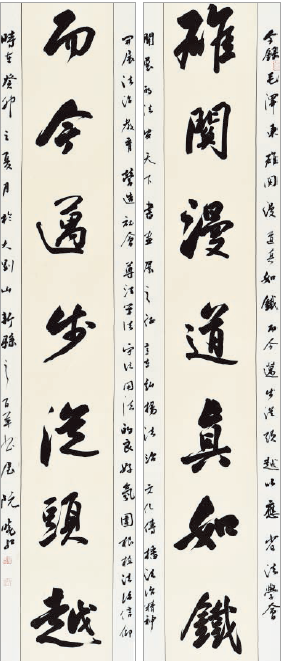 今錄毛澤東雄關漫道真如鐵而今邁步從頭越以應省法學會
雄關漫道眞如鐵
開展的法安天下書畫展之征意在弘揚法治文化傳播法治精神
開展法治教育營造社會尊法學法守法用法的良好氛圍根植法治信仰
而今邁步從頭越
時在癸卯之夏月於大別山新縣之百草書屋阮曉